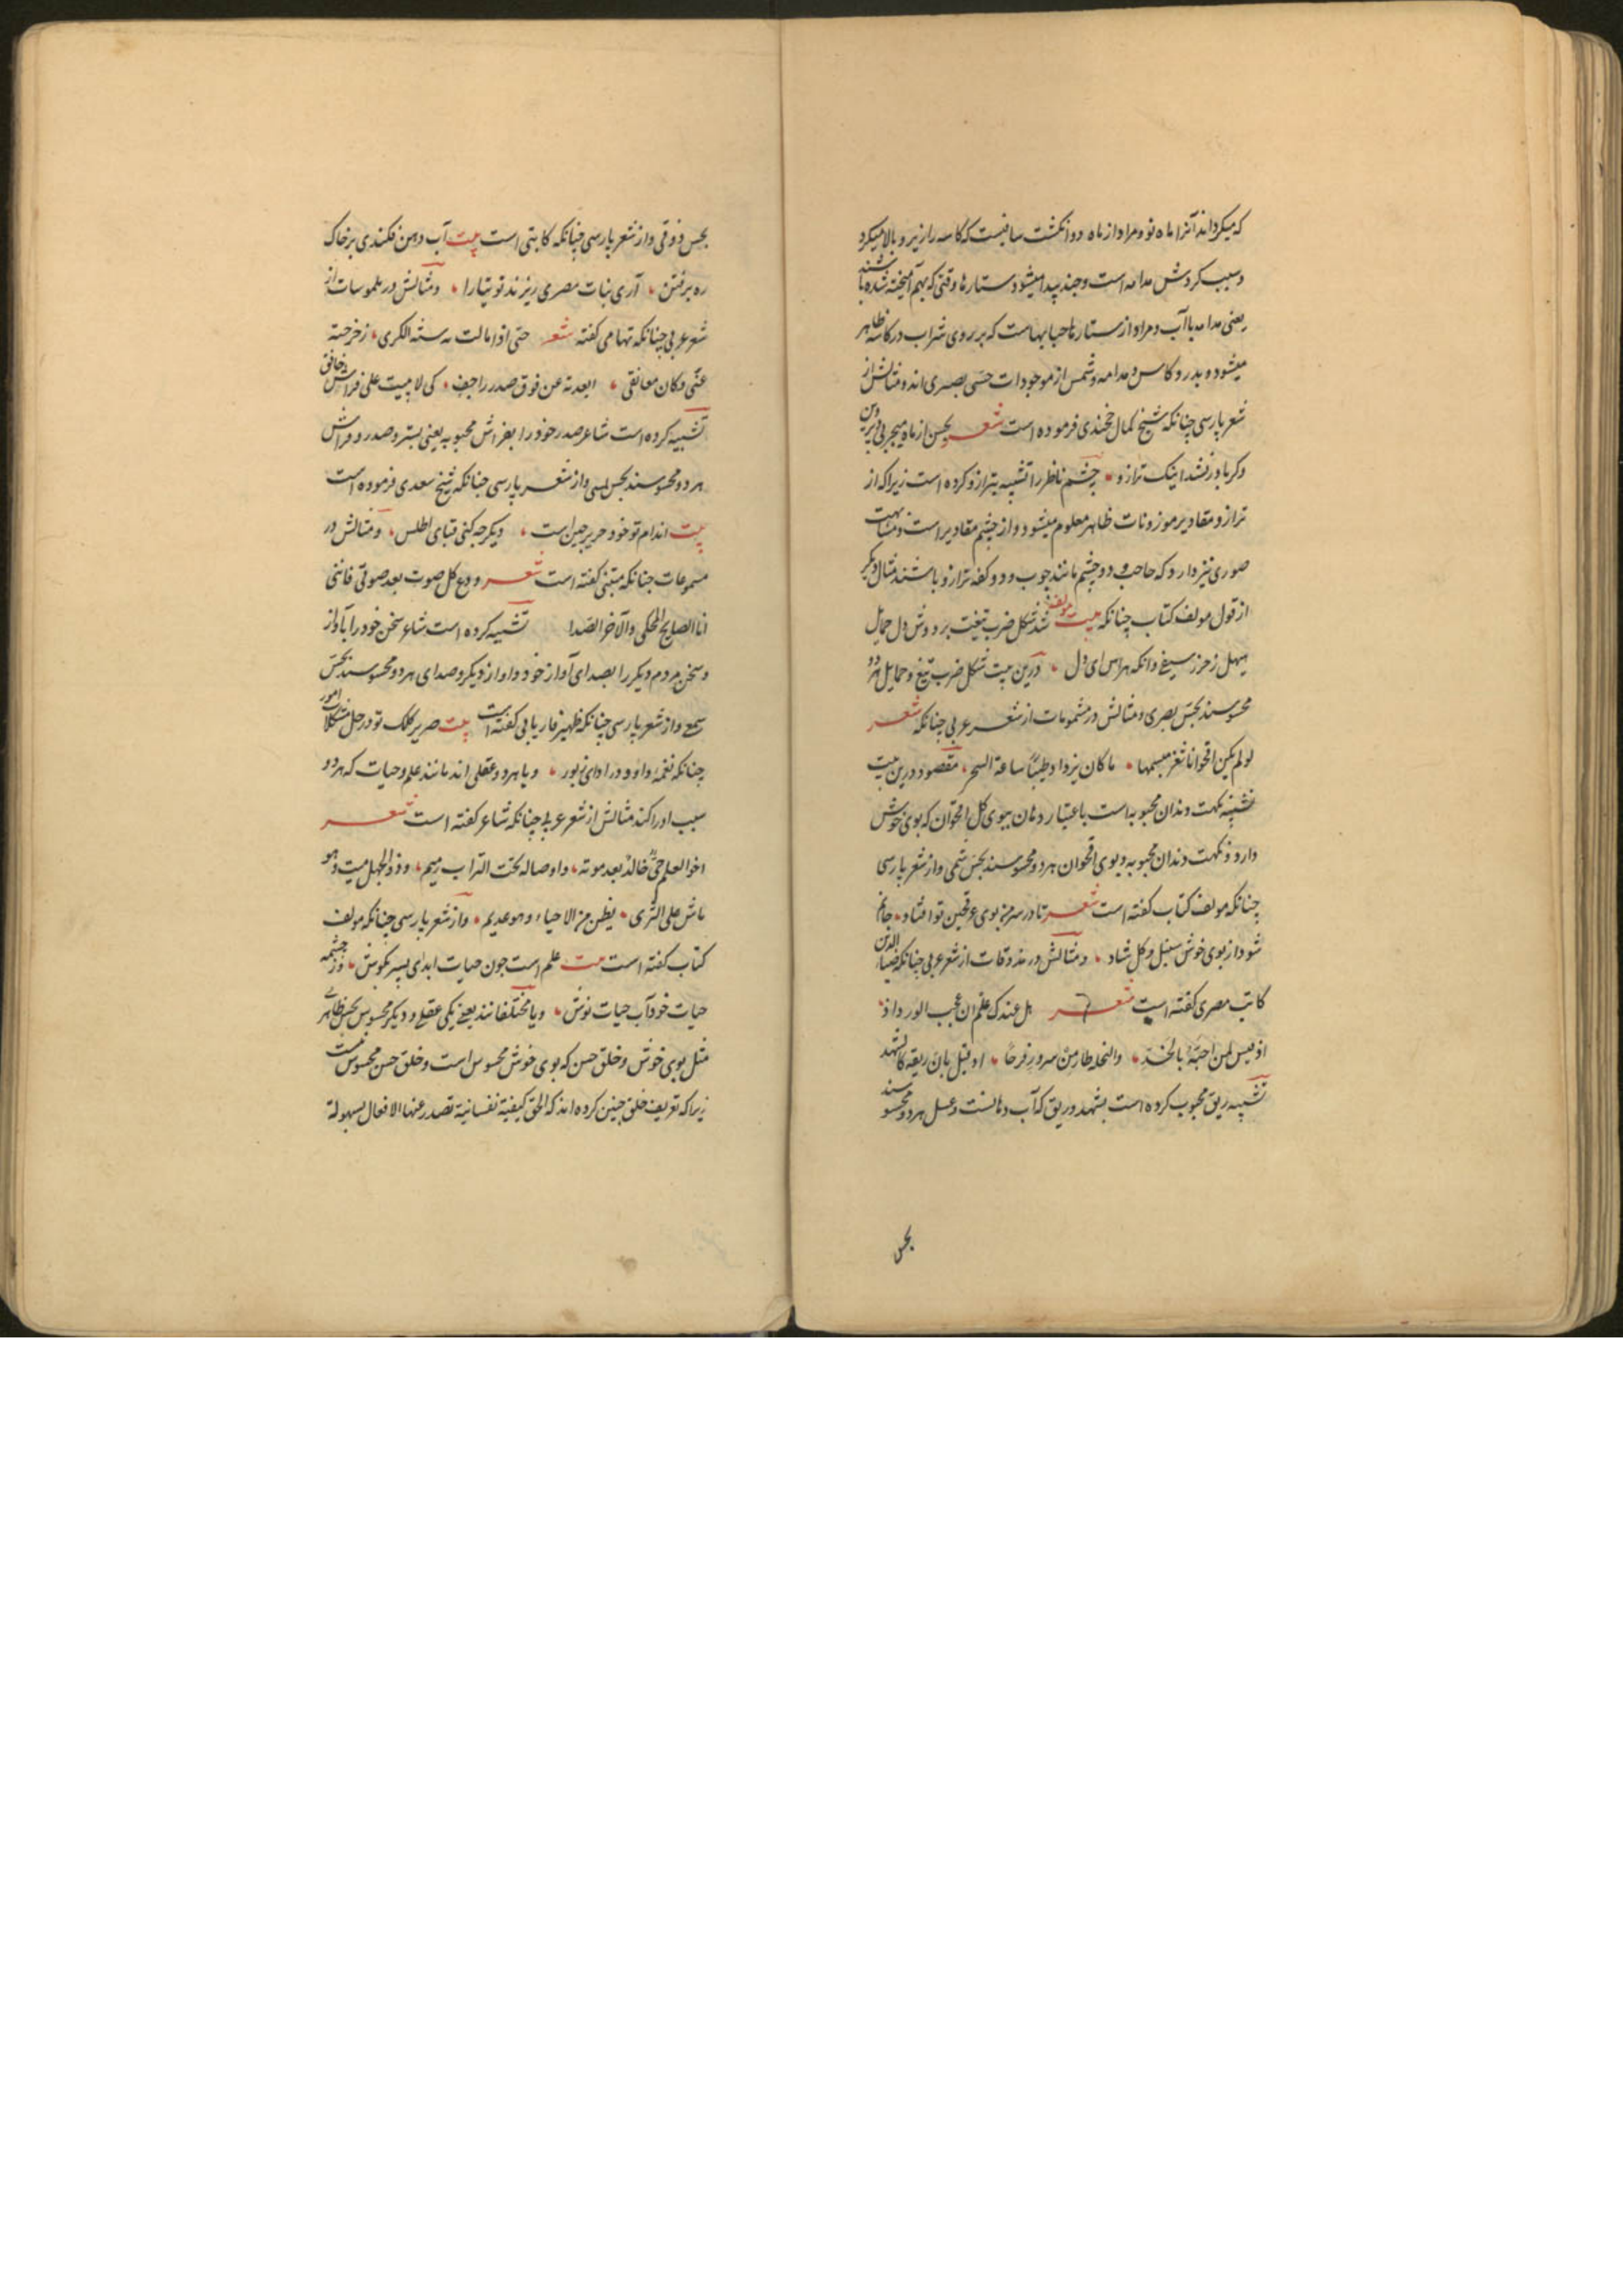 که میکرداند آنرا ماه نو و مراد از ماه دو انکشت ساقیست که کاسه را زیر و بالا میکرد
و سبب کردش مدامه است و چند پیدا میشود ستارها وقتی که بهم آمیخته شده باشند
یعنی مدامه با آب و مراد از ستارها حبابهاست که بر روی شراب در کاسه ظاهر
میشود و بدر و کاس و مدامه و شمس از موجودات حسی بصری اند و مثالش از
شعر پارسی چنانکه شیخ کمال خجندی فرموده است شعر بحسن از ماه میچربی
وکر باور نشد اینک ترازو چشم ناظر را تشبیه بترازو کرده است زیرا که از
ترازو مقادیر موزونات ظاهر معلوم میشود و از چشم مقادیر است و مشابهت
صوری نیز دارد که حاجب و دو چشم مانند چوب و دو کفه ترازو باشند مثال دیکر
از قول مولف کتاب چنانکه بیت لمولفه شد شکل ضرب تیغت بر دوش دل حمایل
هیهل ز حرز سیفی دانکه هراس ای دل درین بیت شکل ضرب تیغ و حمایل هر دو
محسوسند بحس بصری و مثالش در مشمومات از شعر عربی چنانکه شعر
لو لم یکن اقحوانا ثغر مبسمها ما کان یزداد طیبا ساعة السحر مقصود درین بیت
تشبیه نکهت دندان محبوبه است باعتبار دهان ببوی کل اقحوان که بوی خوش
دارد و نکهت دندان محبوبه و بوی اقحوان هر دو محسوسند بحس شمی و از شعر پارسی
چنانکه مولف کتاب کفته است شعر تا در سر من بوی عرقچین تو افتاد جانم
شود از بوی خوش سنبل و کل شاد و مثالش در مذوقات از شعر عربی چنانکه ضیاء الدین
کاتب مصری کفته است شعر هل عندک علم ان عجب الورد اذ
اذ لیس لمن احبه بالخد والنحل طار من سرور فرحا او قیل بان ریقه کالشهد
تشبیه ریق محبوب کرده است بشهد و ریق که آب دهانست و عسل هر دو محسوسند
بحس
بحس ذوقی و از شعر پارسی چنانکه کاتبی است بیت آب دهن فکندی بر خاک
ره برفتن آری نبات مصری ریزند تو تیارا و مثالش در ملموسات از
شعر عربی چنانکه تهامی کفته شعر حتی اذا مالت به سنة الکری زحزحته
عنی و کان معانقی ابعدته عن فوق صدر راجف کی لا یبیت علی فراش خافق
تشبیه کرده است شاعر صدر خود را بفراش محبوبه یعنی بستر و صدر و فراش
هر دو محسوسند بحس لمسی و از شعر پارسی چنانکه شیخ سعدی فرموده است
بیت اندام تو خود حریر چین است دیکر چه کنی قبای اطلس و مثالش در
مسموعات چنانکه متنبی کفته است شعر ودع کل صوت بعد صوتی فاننی
انا الصایح المحکی والآخر الصدا تشبیه کرده است شاعر سخن خود را بآواز
و سخن مردم دیکر را بصدای آواز خود و اواز دیکر و صدای هر دو محسوسند بحس
سمع و از شعر پارسی چنانکه ظهیر فاریابی کفته است بیت صریر کلک تو در حل مشکلات امور
چنانکه نغمه داود در ادای زبور و یا هر دو عقلی اند مانند علم و حیات که هر دو
سبب ادراکند مثالش از شعر عربی چنانکه شاعر کفته است شعر
اخو العلم حی خالد بعد موته و اوصاله تحت التراب رمیم و ذو الجهل میت وهو
ماش علی الثری یظن من الاحیاء و هو عدیم و از شعر پارسی چنانکه مولف
کتاب کفته است بیت علم است چون حیات ابدای پسر بکوش وز چشمه
حیات خود آب حیات نوش و یا مختلفانند یعنی یکی عقلی و دیکر محسوس بحس ظاهر
مثل بوی خوش و خلق حسن که بوی خوش محسوس است و خلق حسن محسوس نیست
زیرا که تعریف خلق چنین کرده اند که الخلق کیفیة نفسانیة تصدر عنها الافعال بسهولة